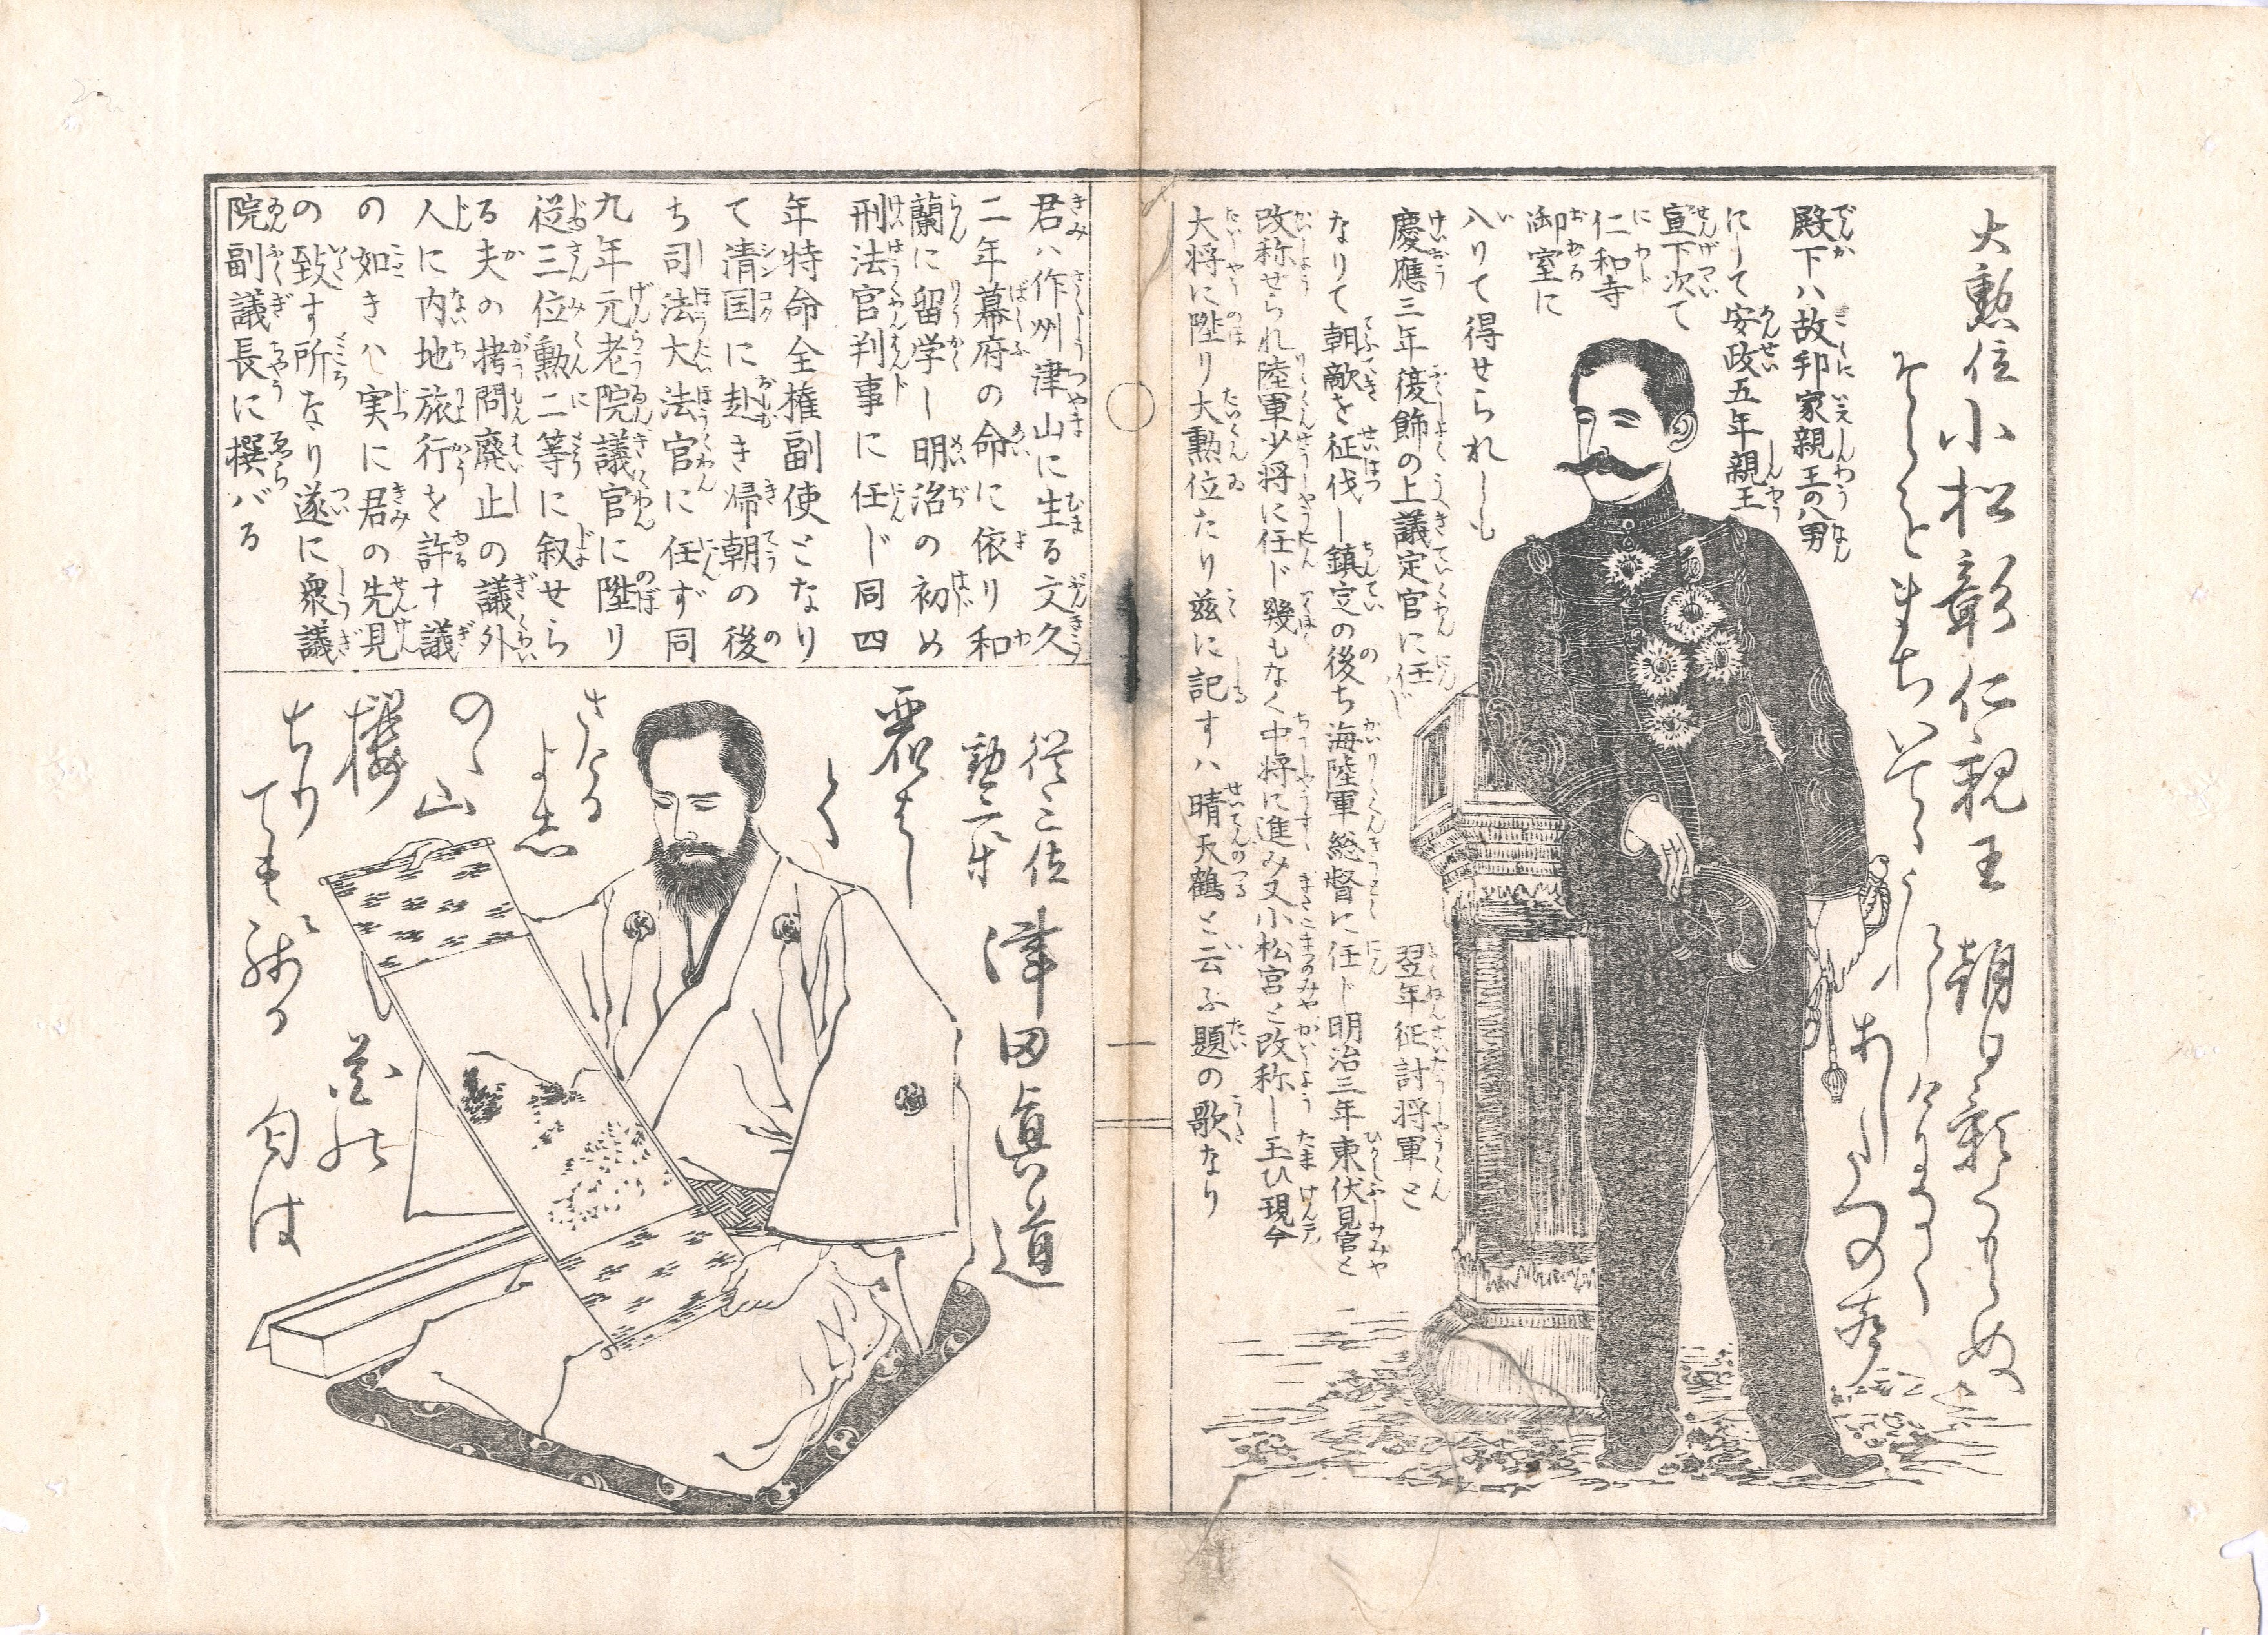 大勲位小松彰仁親王
朝日影
殿下ハ故邦家親王の八男
にして安政五年親王
宣下次て
仁和寺
御室に
入りて得せられしも
慶應三年復飾の上議定官に任じ
翌年征討将軍と
なりて朝敵を征伐し鎮定の後ち海陸軍総督に任じ明治三年東伏見宮と
改称せられ陸軍少将に任じ幾もなく中将に進み又小松宮と改称し玉ひ現今
大将に陞り大勲位たり茲に記すハ晴天鶴と云ふ題の歌なり
一
君ハ作州津山に生る文久
二年幕府の命に依り和
蘭に留学し明治の初め
刑法官判事に任じ同四
年特命全権副使となり
て清国に赴き帰朝の後
ち司法大法官に任ず同
九年元老院議官に陞り
従三位勲二等に叙せら
る夫の拷問廃止の議外
人に内地旅行を許す議
の如きハ実に君の先見
の致す所なり遂に衆議
院副議長に撰バる
従三位
勲二等
津田眞道
さける
よし
のゝ山
櫻
ちり
ても
花の
匂は